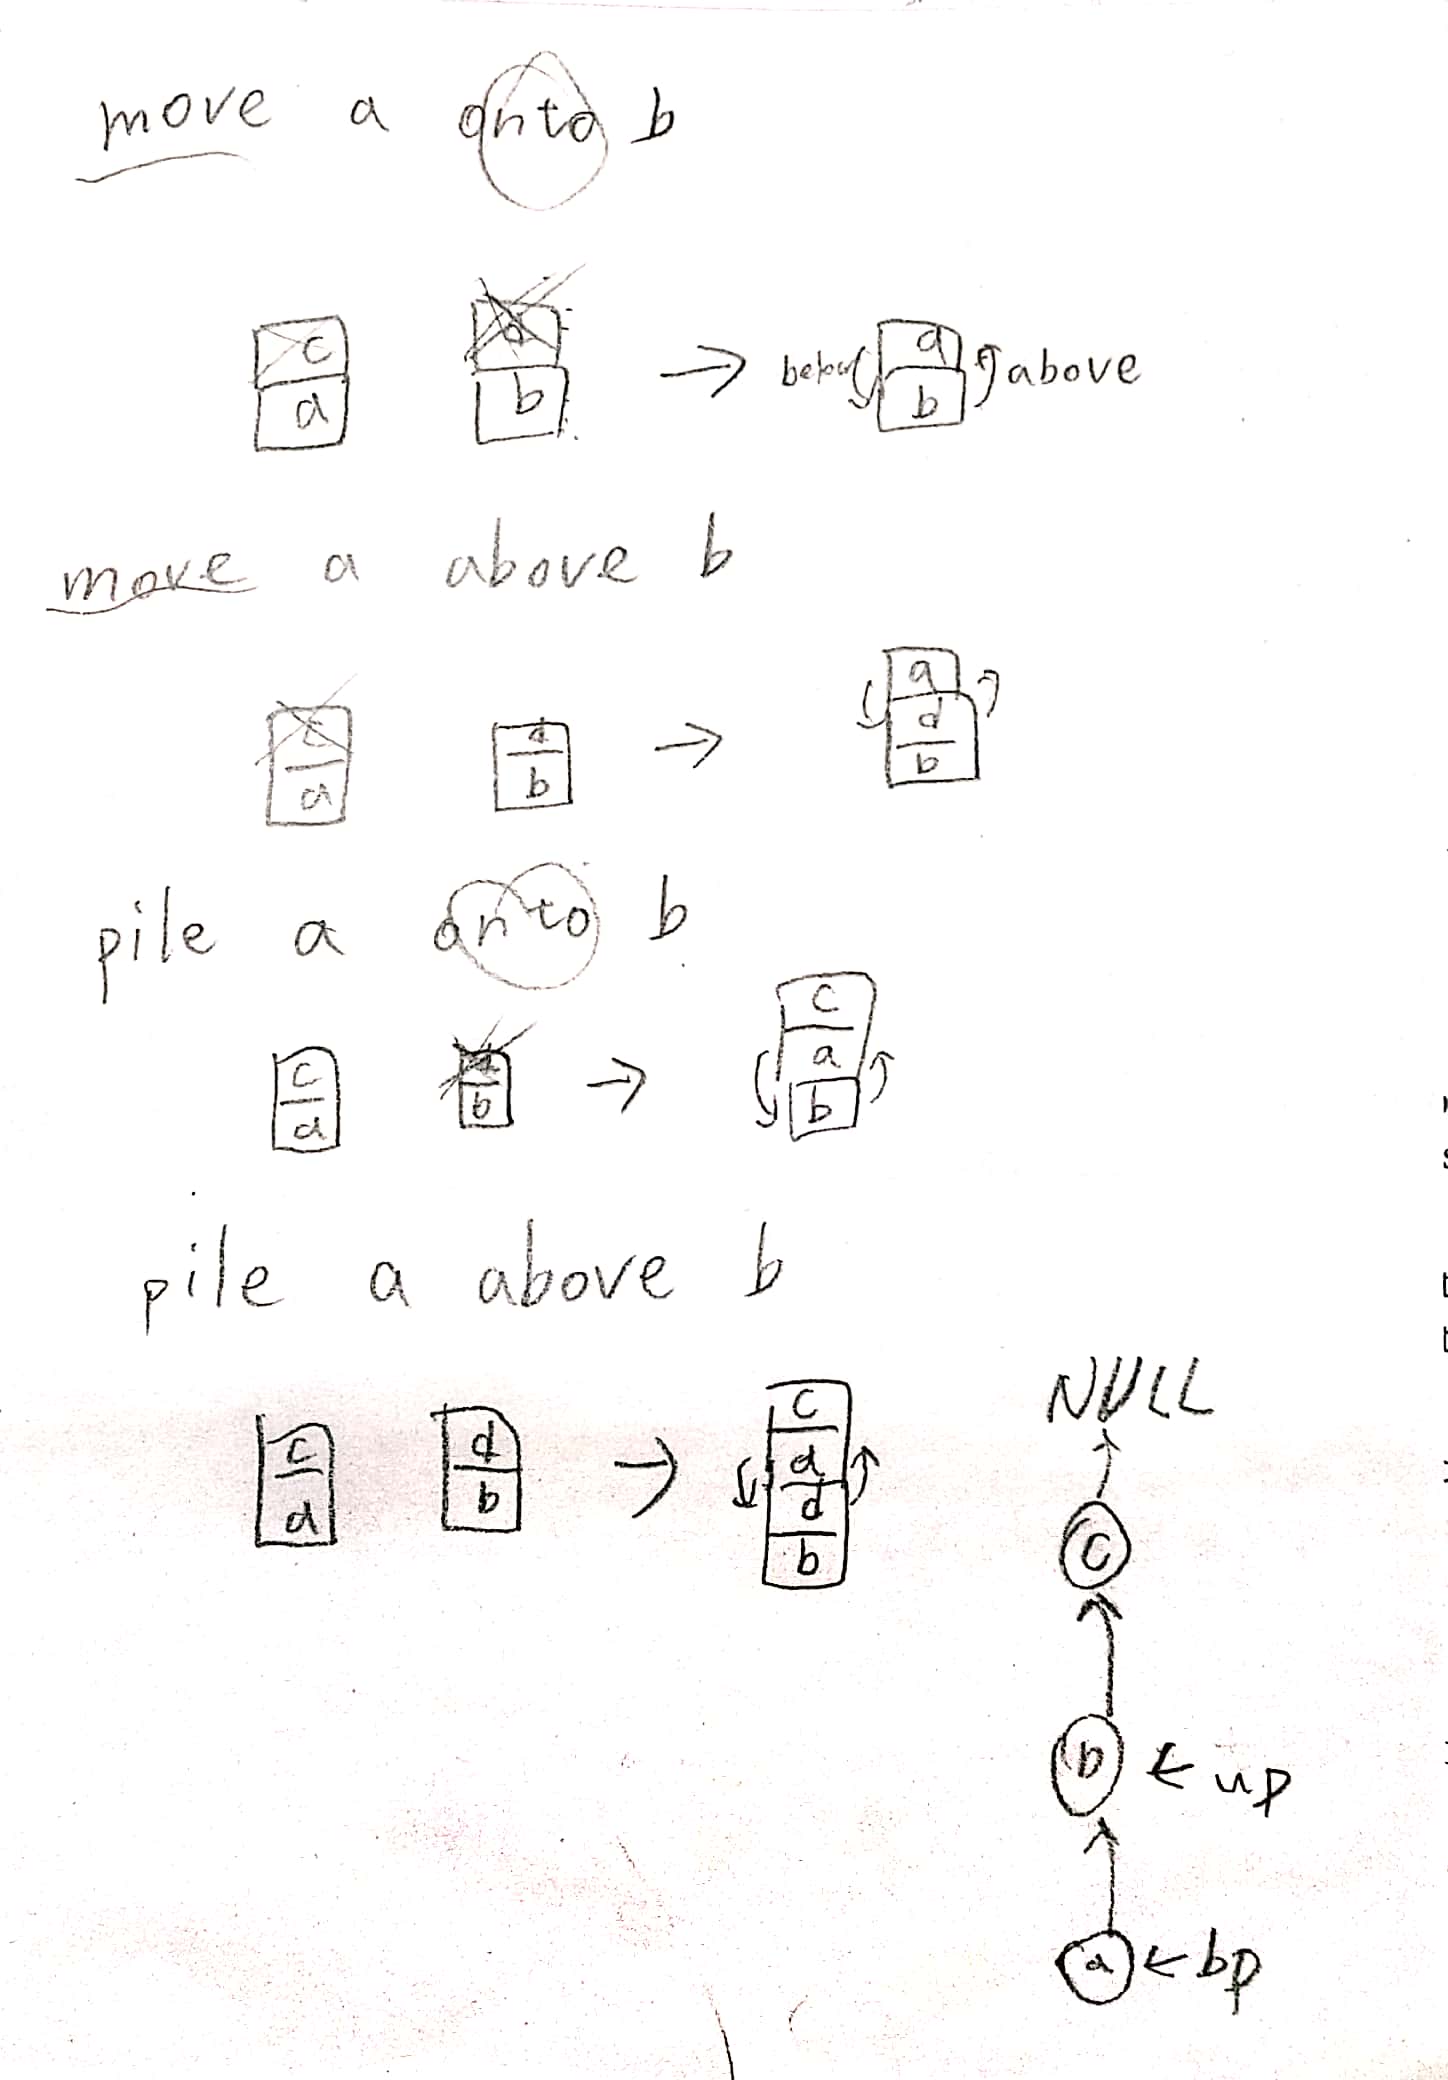 move a onto b
c d
a b → below a b above
move a above b
c d
a b → a d b
pile a onto b
c
a b → c a b
pile a above b
c d
a b → c a d b
NULL
c
b ← up
a ← bp